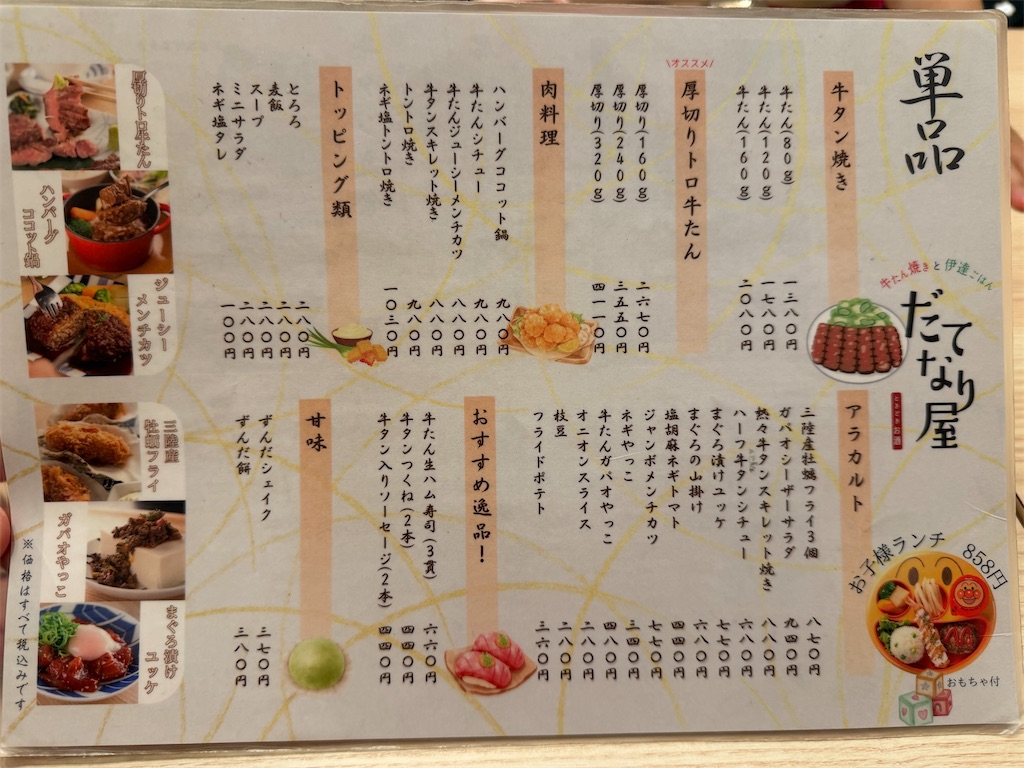 単品
牛たん焼きと伊達ごはん
だてなり屋
ときどきお酒
牛タン焼き
牛たん(80g) 一三八〇円
牛たん(120g) 一七八〇円
牛たん(160g) 二〇八〇円
オススメ
厚切りトロ牛たん
厚切り(160g) 二六七〇円
厚切り(240g) 三五五〇円
厚切り(320g) 四一一〇円
肉料理
ハンバーグココット鍋 九八〇円
牛たんシチュー 九八〇円
牛たんジューシーメンチカツ 八八〇円
牛タンスキレット焼き 八八〇円
トントロ焼き 九八〇円
ネギ塩トントロ焼き 一〇三〇円
トッピング類
とろろ 二八〇円
麦飯 二八〇円
スープ 二八〇円
ミニサラダ 二八〇円
ネギ塩タレ 一〇〇円
厚切りトロ牛たん
ハンバーグ
ココット鍋
ジューシー
メンチカツ
お子様ランチ 858円
おもちゃ付
アラカルト
三陸産牡蠣フライ3個 八七〇円
ガパオシーザーサラダ 九四〇円
熱々牛タンスキレット焼き 八八〇円
ハーフ牛タンシチュー 六八〇円
まぐろ漬けユッケ 七八〇円
まぐろの山掛け 六八〇円
塩胡麻ネギトマト 四四〇円
ジャンボメンチカツ 七七〇円
ネギやっこ 三四〇円
牛たんガパオやっこ 四四〇円
オニオンスライス 二八〇円
枝豆 二八〇円
フライドポテト 三六〇円
おすすめ逸品!
牛たん生ハム寿司(3貫) 六六〇円
牛タンつくね(2本) 四四〇円
牛タン入りソーセージ(2本) 四四〇円
甘味
ずんだシェイク 三七〇円
ずんだ餅 三八〇円
三陸産
牡蠣フライ
ガパオやっこ
まぐろ漬け
ユッケ
※価格はすべて税込みです